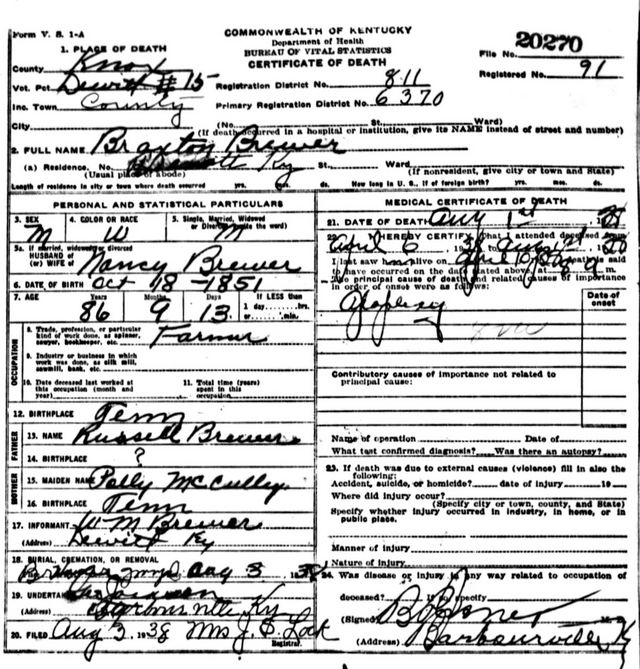 Form V. S. 1-A
COMMONWEALTH OF KENTUCKY
Department of Health
BUREAU OF VITAL STATISTICS
CERTIFICATE OF DEATH
20270
File No.
Registered No. 91
1. PLACE OF DEATH
County Knox
Vot. Pct. Dewitt # 15
Inc. Town County
City
Registration District No. 811
Primary Registration District No. 6370
(No. St. Ward)
(If death occurred in a hospital or institution, give its NAME instead of street and number)
2. FULL NAME Braxton Brewer
(a) Residence. No. Ky St. Ward
(Usual place of abode) (If nonresident, give city or town and State)
Length of residence in city or town where death occurred yrs. mos. ds. How long in U. S., if of foreign birth? yrs. mos. ds.
PERSONAL AND STATISTICAL PARTICULARS
3. SEX M
4. COLOR OR RACE W
5. Single, Married, Widowed or Divorced (write the word) M
5a. If married, widowed or divorced
HUSBAND of
(or) WIFE of Nancy Brewer
6. DATE OF BIRTH Oct 18-1851
7. AGE Years Months Days If LESS than
86 9 13 1 day hrs. or min.
OCCUPATION
8. Trade, profession, or particular kind of work done, as spinner, sawyer, bookkeeper, etc. Farmer
9. Industry or business in which work was done, as silk mill, sawmill, bank, etc.
10. Date deceased last worked at this occupation (month and year)
11. Total time (years) spent in this occupation
12. BIRTHPLACE Tenn
FATHER
13. NAME Russell Brewer
14. BIRTHPLACE ?
MOTHER
15. MAIDEN NAME Polly McCulley
16. BIRTHPLACE Tenn
17. INFORMANT W M Brewer
(Address) Dewitt Ky
18. BURIAL, CREMATION, OR REMOVAL
Aug 3 1938
19. UNDERTAKER
(Address) Barbourville Ky
20. FILED Aug 3 1938 Mrs J. S. Lock
Registrar.
MEDICAL CERTIFICATE OF DEATH
21. DATE OF DEATH Aug 1st
22. I HEREBY CERTIFY, That I attended deceased from
April 6
I last saw alive on April death is said
to have occurred on the date stated above, at
The principal cause of death and related causes of importance
in order of onset were as follows:
Date of onset
Contributory causes of importance not related to
principal cause:
Name of operation Date of
What test confirmed diagnosis? Was there an autopsy?
23. If death was due to external causes (violence) fill in also the
following:
Accident, suicide, or homicide? date of injury 19
Where did injury occur?
(Specify city or town, county, and State)
Specify whether injury occurred in industry, in home, or in
public place.
Manner of injury
Nature of injury
24. Was disease or injury in any way related to occupation of
deceased? If so specify
(Signed)
(Address) Barbourville Ky